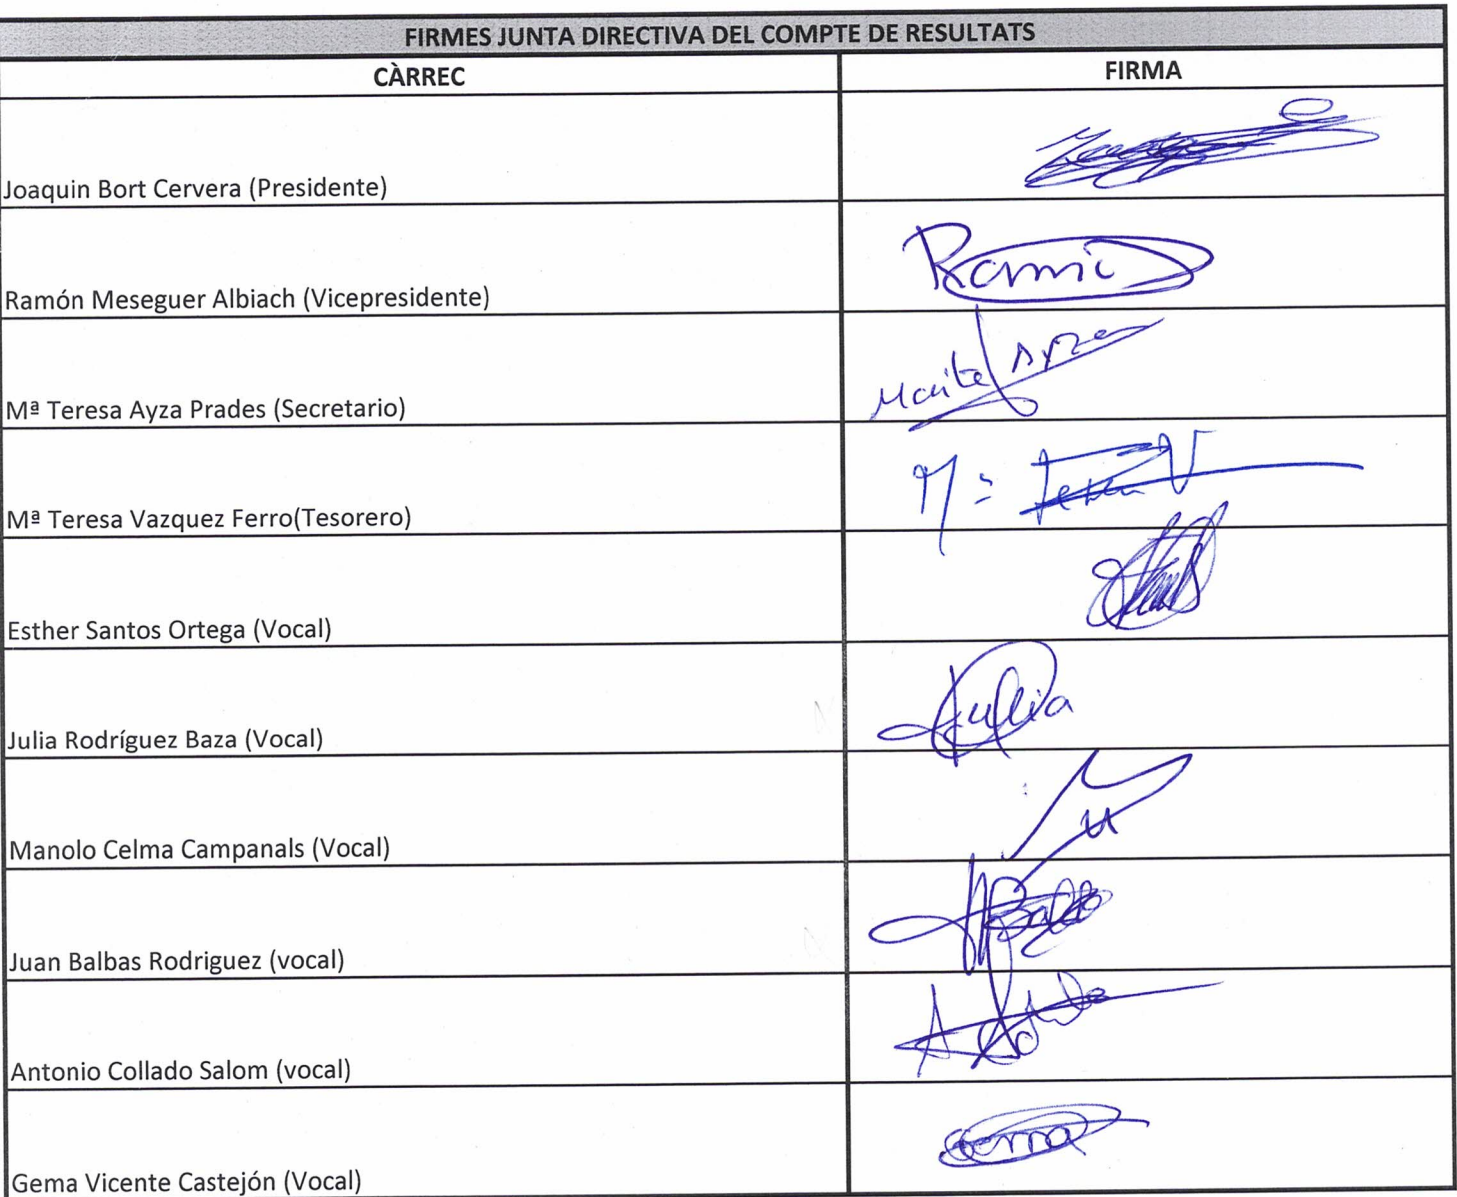 FIRMES JUNTA DIRECTIVA DEL COMPTE DE RESULTATS
CÀRREC FIRMA
Joaquin Bort Cervera (Presidente)
Ramón Meseguer Albiach (Vicepresidente)
Mª Teresa Ayza Prades (Secretario)
Maite Ayza
Mª Teresa Vazquez Ferro(Tesorero)
Esther Santos Ortega (Vocal)
Julia Rodríguez Baza (Vocal)
Julia
Manolo Celma Campanals (Vocal)
Juan Balbas Rodriguez (vocal)
Antonio Collado Salom (vocal)
Gema Vicente Castejón (Vocal)
Gema